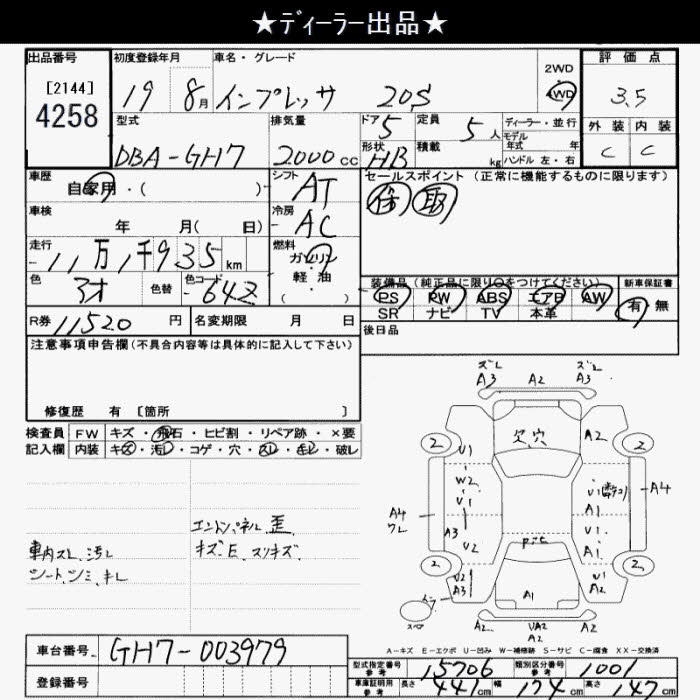 ★ディーラー出品★
出品番号 初度登録年月 車名・グレード 2WD 4WD 評価点
[2144]
4258
19 8月 インプレッサ 20S 3.5
型式 排気量 ドア 5 定員 5人 ディーラー・並行 外装 内装
モデル年式 年
DBA-GH7 2000cc 形状 HB 積載 kg ハンドル 左・右 C C
車歴 自家用・( ) シフト AT セールスポイント(正常に機能するものに限ります)
車検 年 月( 日) 冷房 AC
走行 11万1千935km 燃料 ガソリン・軽油 ( )
色 色替 色コード 642 装備品(純正品に限り○をつけてください) 新車保証書
PS PW ABS エアB AW 有・無
SR ナビ TV 本革
R券 11520円 名変期限 月 日 後日品
注意事項申告欄(不具合内容等は具体的に記入して下さい)
修復歴 有 [箇所 ]
検査員 FW キズ・飛石・ヒビ割・リペア跡・×要
記入欄 内装 キズ・汚レ・コゲ・穴・スレ・キレ・破レ
ズレ A3 A2 ズレ A3
2 欠、穴 A2 2
U1
W2 U1
A4 ワレ U1 U1 A4
A3 U2 A1
2 2
U2 A3 A1 U1 A2
A2 UA2 A2 A2
エンドパネル 歪
キズE、スリキズ
車内スレ、汚レ
シート、シミ、キレ
A-キズ E-エクボ U-凹み W-補修跡 S-サビ C-腐食 XX-交換済
車台番号 GH7-003979
登録番号
型式指定番号 参考 15706 類別区分番号 参考 1001
車庫証明用 参考 長さ 441cm 幅 174cm 高さ 147cm